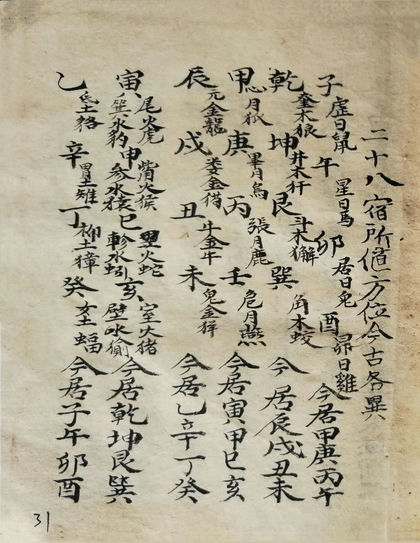 二十八宿所值方位今古各異
子虛日鼠午星日馬卯居日兔酉昴日雞今居甲庚丙午
乾奎木狼坤井木犴艮斗木獬巽角木蛟今居辰戌丑未
甲心月狐庚畢月烏丙張月鹿壬危月燕今居寅甲巳亥
辰亢金龍戌婁金猫丑牛金牛未鬼金羊今居乙辛丁癸
寅尾火虎箕水豹甲觜火猴參水猿巳翌火蛇軫水蚓亥室火猪壁水㺄今居乾坤艮巽
乙氐土貉辛胃土雉丁柳土獐癸女土蝠今居子午卯酉
31